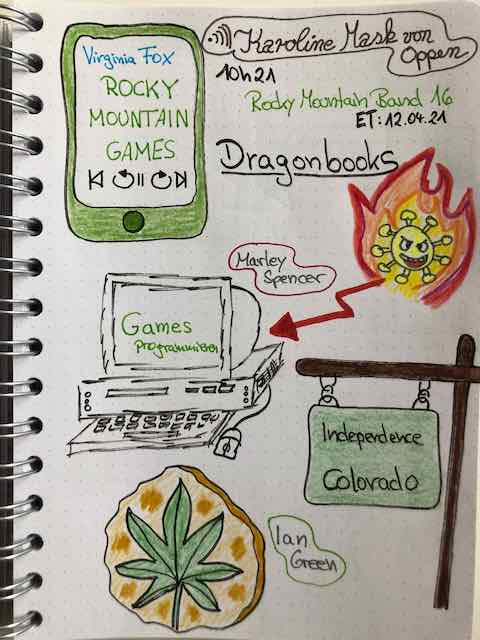 Virginia Fox
ROCKY
MOUNTAIN
GAMES
Karoline Mask von
Oppen
10h21
Rocky Mountain Band 16
ET: 12.04.21
Dragonbooks
Marley
Spencer
Games
Programmieren
Independence
Colorado
Ian
Green